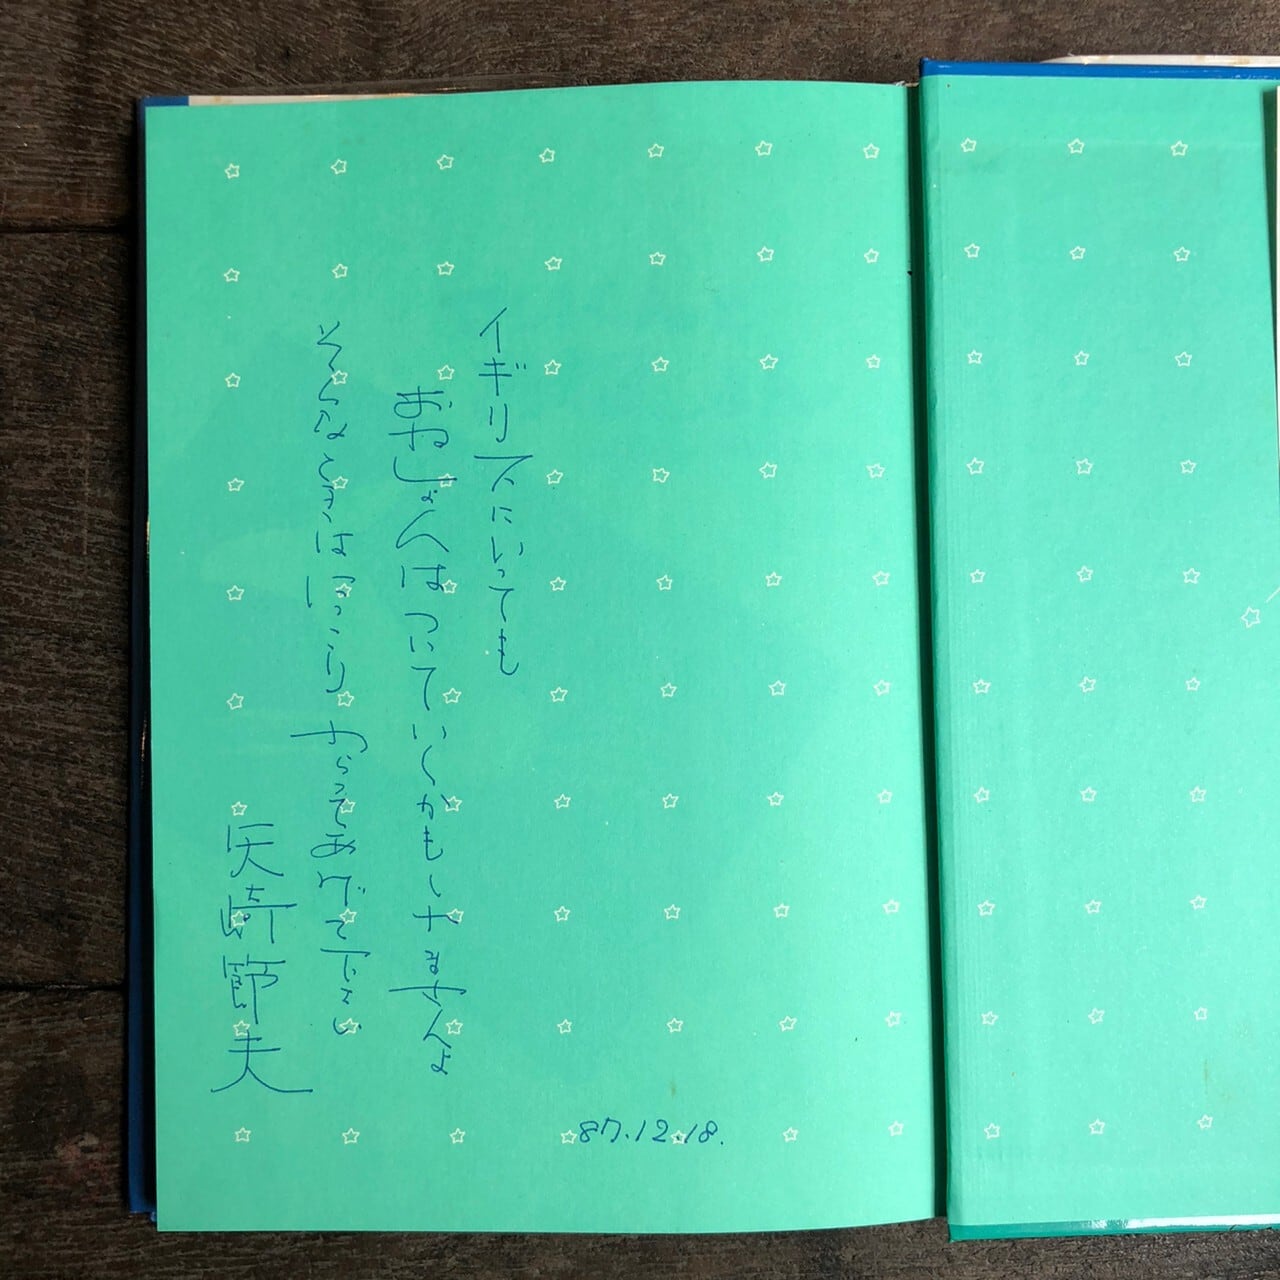 イギリスにいっても
おねしょんはついていくかもしれませんよ
そんなときはにっこりわらってあげて下さい
矢崎節夫
87.12.18.